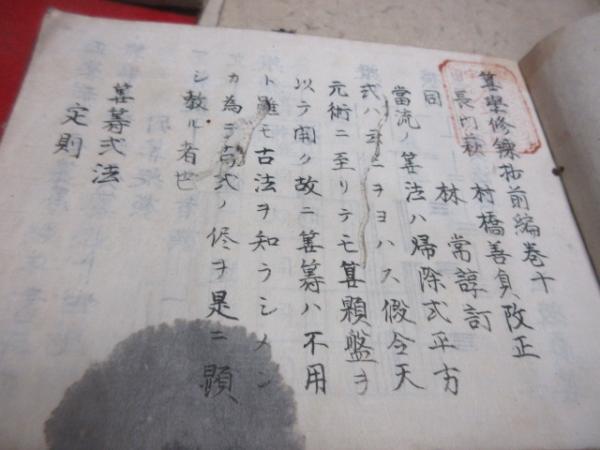 筭學修錬抄前編巻十
村橋善貞改正
長内萩
林 常諄訂
同
當流ノ筭法ハ帰除式平方
式ハ ニヲヨハス假令天
元術ニ至リテモ筭顆盤ヲ
以テ開ク故ニ筭籌ハ不用
ト雖モ古法ヲ知ラシメン
カ為ニ古式ノ侭ヲ是ニ顕
シ教ル者也
筭籌式法
定則